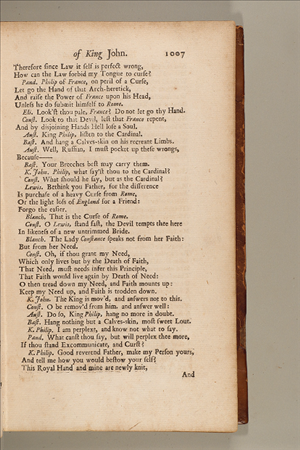 of King John. 1007
Therefore since Law it self is perfect wrong,
How can the Law forbid my Tongue to curse?
Pand. Philip of France, on peril of a Curse,
Let go the Hand of that Arch-heretick,
And raise the Power of France upon his Head,
Unless he do submit himself to Rome.
Eli. Look'st thou pale, France? Do not let go thy Hand.
Const. Look to that Devil, lest that France repent,
And by disjoining Hands Hell lose a Soul.
Aust. King Philip, listen to the Cardinal.
Bast. And hang a Calves-skin on his recreant Limbs.
Aust. Well, Ruffian, I must pocket up these wrongs,
Because——
Bast. Your Breeches best may carry them.
K. John. Philip, what say'st thou to the Cardinal?
Const. What should he say, but as the Cardinal?
Lewis. Bethink you Father, for the difference
Is purchase of a heavy Curse from Rome,
Or the light loss of England for a Friend:
Forgo the easier.
Blanch. That is the Curse of Rome.
Const. O Lewis, stand fast, the Devil tempts thee here
In likeness of a new untrimmed Bride.
Blanch. The Lady Constance speaks not from her Faith:
But from her Need.
Const. Oh, if thou grant my Need,
Which only lives but by the Death of Faith,
That Need, must needs infer this Principle,
That Faith would live again by Death of Need:
O then tread down my Need, and Faith mounts up:
Keep my Need up, and Faith is trodden down.
K. John. The King is mov'd, and answers not to this.
Const. O be remov'd from him, and answer well:
Aust. Do so, King Philip, hang no more in doubt.
Bast. Hang nothing but a Calves-skin, most sweet Lout.
K. Philip. I am perplext, and know not what to say.
Pand. What canst thou say, but will perplex thee more,
If thou stand Excommunicate, and Curst?
K. Philip. Good reverend Father, make my Person yours,
And tell me how you would bestow your self?
This Royal Hand and mine are newly knit,
And